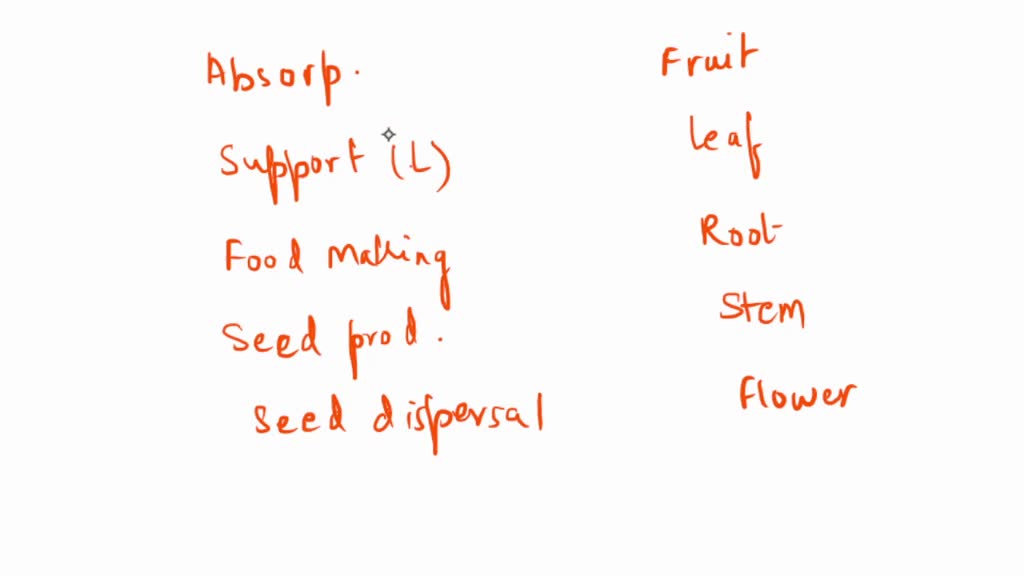 Absorp.
Support (L)
Food Making
Seed prod.
Seed dispersal
Fruit
leaf
Root
Stem
Flower